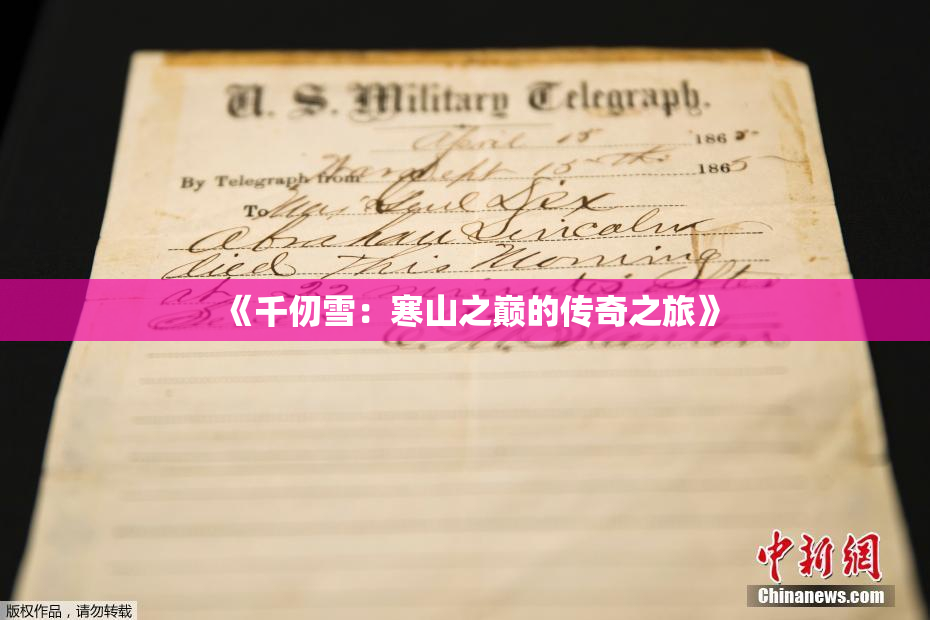 U. S. Military Telegraph.
April 15 1865
By Telegraph from War Dept 15th 1865
To Maj Genl Dix
Abraham Lincoln
died This Morning
at 22 minutes after
《千仞雪：寒山之巅的传奇之旅》
E. M. Stanton
中新网
Chinanews.com
版权作品，请勿转载